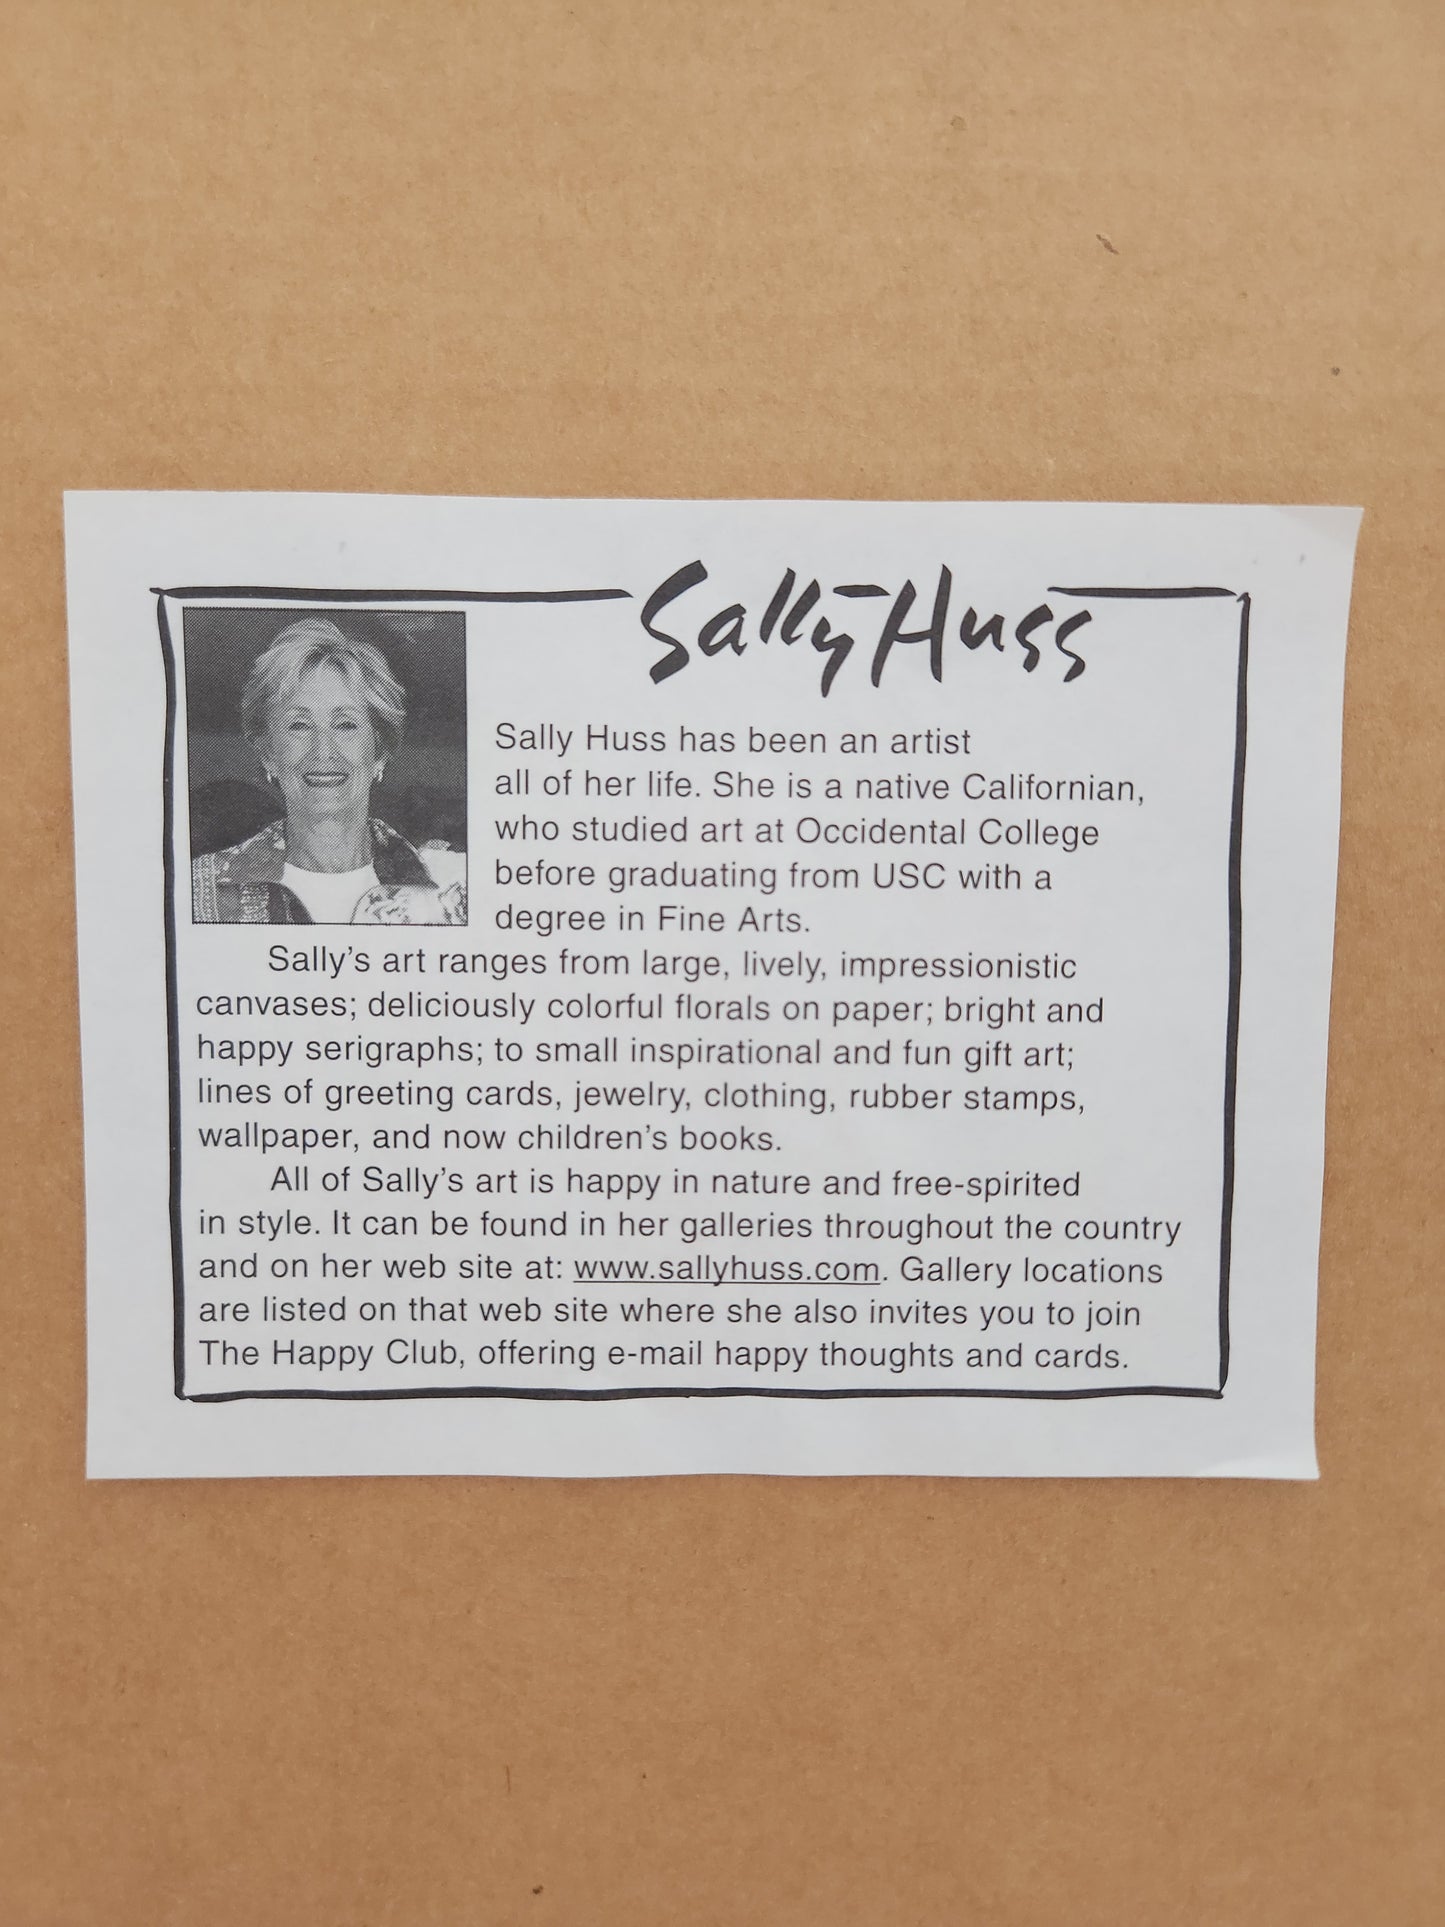 Sally Huss
Sally Huss has been an artist
all of her life. She is a native Californian,
who studied art at Occidental College
before graduating from USC with a
degree in Fine Arts.
Sally's art ranges from large, lively, impressionistic
canvases; deliciously colorful florals on paper; bright and
happy serigraphs; to small inspirational and fun gift art;
lines of greeting cards, jewelry, clothing, rubber stamps,
wallpaper, and now children's books.
All of Sally's art is happy in nature and free-spirited
in style. It can be found in her galleries throughout the country
and on her web site at: www.sallyhuss.com. Gallery locations
are listed on that web site where she also invites you to join
The Happy Club, offering e-mail happy thoughts and cards.